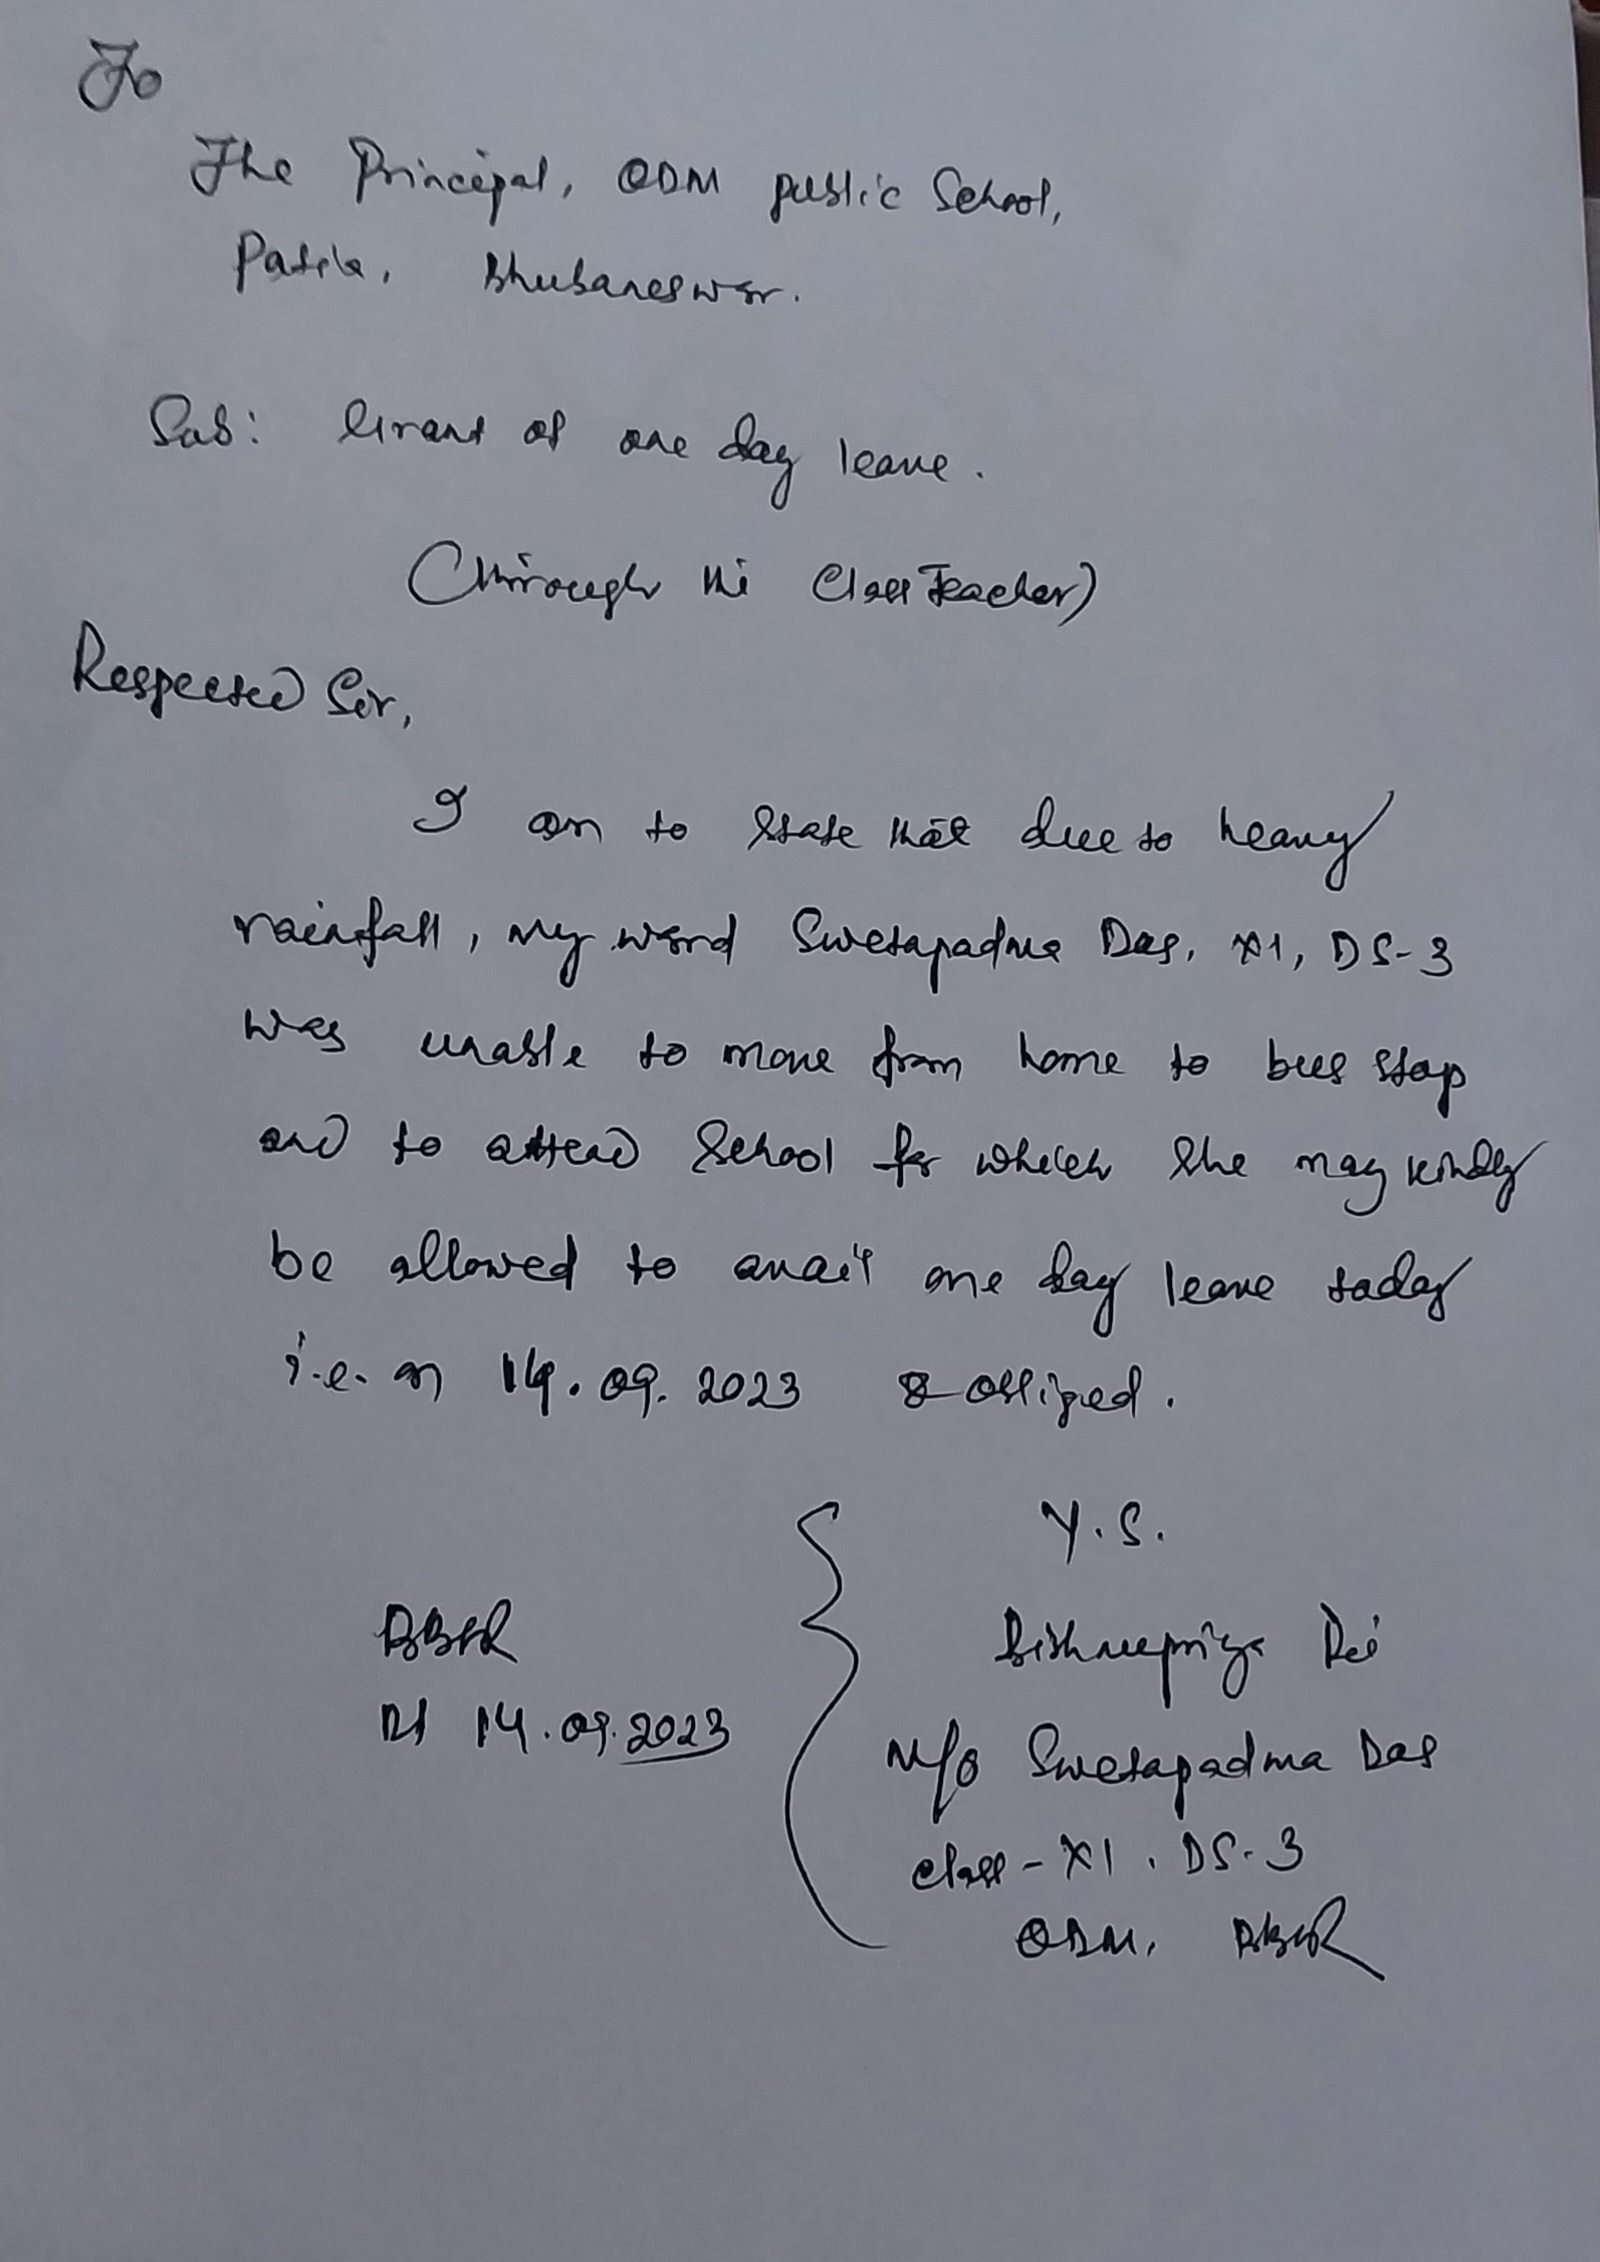 To
The Principal, ODM public School,
Patia, Bhubaneswar.
Sub: Grant of one day leave.
(Through the Class Teacher)
Respected Sir,
I am to state that due to heavy
rainfall, my word Swetapadma Das, XI, DS-3
was unable to move from home to bus stop
and to attend School for which She may kindly
be allowed to avail one day leave today
i.e. on 14.09.2023 & obliged.
Y.S.
BBSR
Bishnupriya Dei
Dt 14.09.2023
M/o Swetapadma Das
class - XI, DS-3
ODM, BBSR